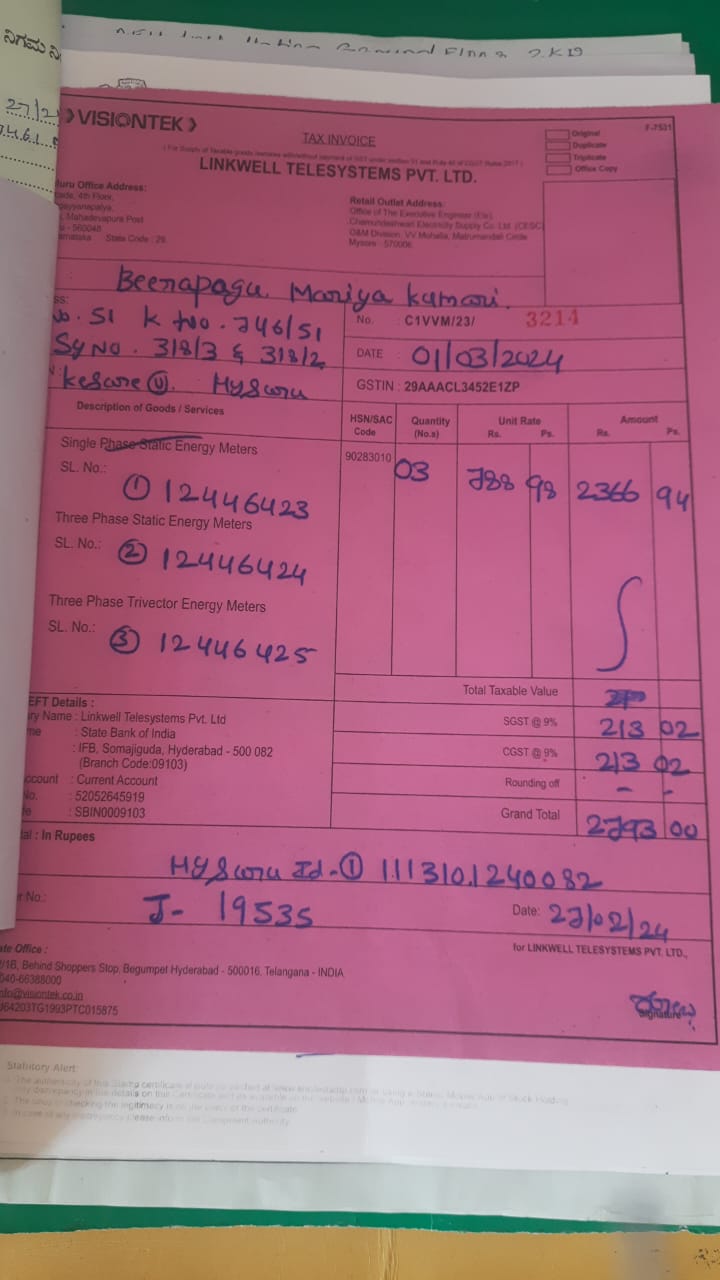 ನಿಗಮ ನಿ
27/2
VISIONTEK
TAX INVOICE
F-7531
Original
Duplicate
Triplicate
Office Copy
LINKWELL TELESYSTEMS PVT. LTD.
uru Office Address:
4th Floor,
Mahadevapura Post
- 560048
arnataka State Code : 29
Retail Outlet Address:
Office of The Executive Engineer (Ele)
Chamundeshwari Electricity Supply Co. Ltd. (CESC)
O&M Division, VV Mohalla, Matrumandali Circle
Mysore - 570006
Beerapagu. Mariya Kumari.
ss:
No. 51 K No. 746/51
Sy No. 318/3 & 318/2
Kesare (U). Mysoru
No. : C1VVM/23/ 3214
DATE : 01/03/2024
GSTIN : 29AAACL3452E1ZP
Description of Goods / Services
HSN/SAC Code
Quantity (No.s)
Unit Rate Rs. Ps.
Amount Rs. Ps.
Single Phase Static Energy Meters
90283010 03 788 98 2366 94
SL. No.:
① 12446423
Three Phase Static Energy Meters
SL. No.: ② 12446424
Three Phase Trivector Energy Meters
SL. No.: ③ 12446425
Total Taxable Value
SGST @ 9% 213 02
CGST @ 9% 213 02
Rounding off - -
Grand Total 2793 00
EFT Details :
ry Name : Linkwell Telesystems Pvt. Ltd
me : State Bank of India
: IFB, Somajiguda, Hyderabad - 500 082
(Branch Code:09103)
ccount : Current Account
No. : 52052645919
e : SBIN0009103
tal : In Rupees
Mysoru Id-① 1113101240082
r No.: J- 19535
Date: 27/02/24
for LINKWELL TELESYSTEMS PVT. LTD.,
ate Office :
/1B, Behind Shoppers Stop, Begumpet Hyderabad - 500016. Telangana - INDIA
040-66388000
nfo@visiontek.co.in
J64203TG1993PTC015875
Signature
Statutory Alert: